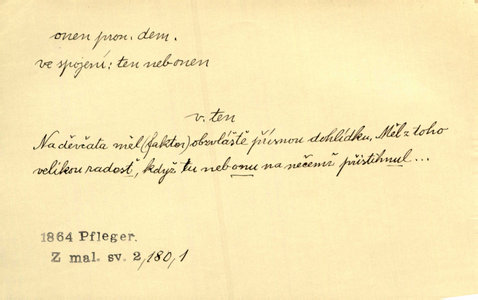 onen pron. dem.
ve spojení: ten neb onen
v. ten
Na děvčata měl (faktor) obzvláště přísnou dohlídku. Měl z toho
velikou radost, když tu neb onu na něčemž přistihnul...
1864 Pfleger.
Z mal. sv. 2,180,1